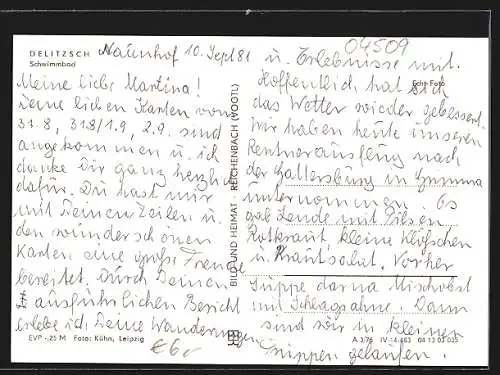 04509
DELITZSCH
Schwimmbad
Naunhof 10. Sept 81
Meine liebe Martina!
Deine lieben Karten vom
31.8, 31.8/1.9, 2.9. sind
angekommen u. ich
danke Dir ganz herzlich
dafür. Du hast mir
mit Deinen Zeilen u.
den wunderschönen
Karten eine große Freude
bereitet. Durch Deinen
ausführlichen Bericht
erlebe ich Deine Wanderungen
u. Erlebnisse mit.
Echt Foto
Hoffentlich hat sich
das Wetter wieder gebessert.
Wir haben heute unseren
Rentnerausflug nach
der Gattersburg in Grimma
unternommen. Es
gab Lende mit Pilsen
Rotkraut, kleine Klößchen
u. Krautsalat. Vorher
Suppe danna Mischobst
mit Schlagsahne. Dann
sind wir in kleinen
Gruppen gelaufen.
BILD UND HEIMAT REICHENBACH (VOGTL)
EVP -.25 M Foto: Kühn, Leipzig
€6,-
A 3/76 IV-14-483 04 13 03 035